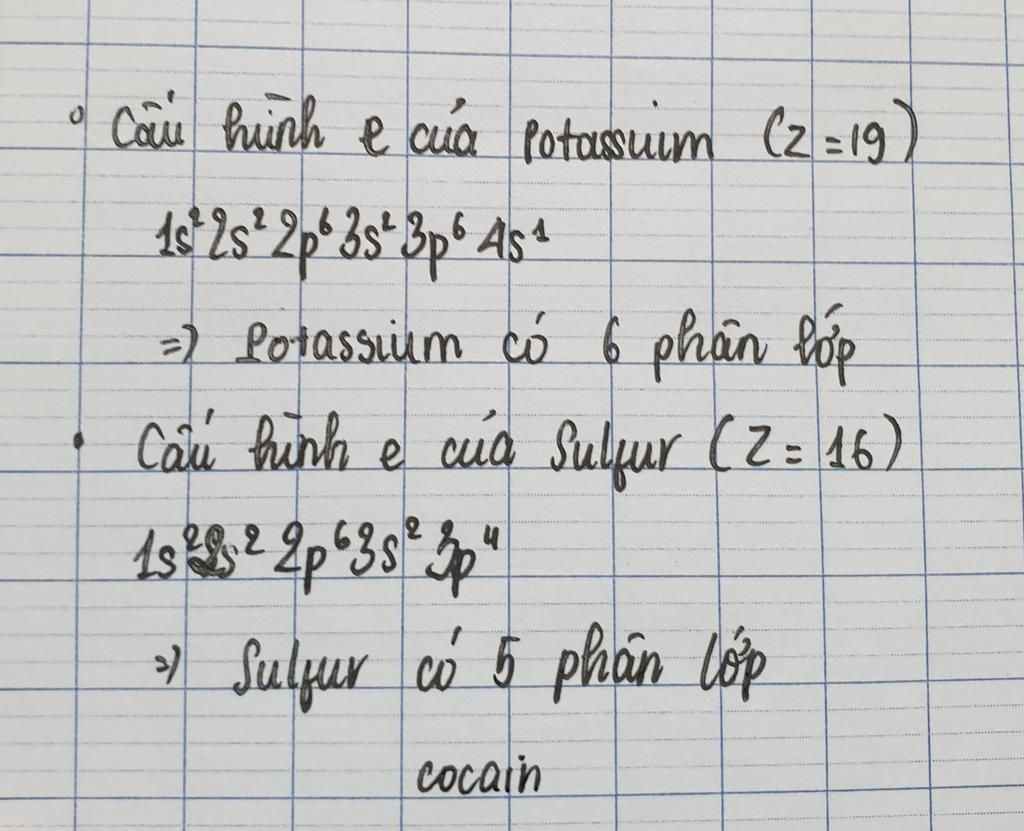 ° Cấu hình e của Potassium (Z=19)
1s² 2s² 2p⁶ 3s² 3p⁶ 4s¹
=) Potassium có 6 phân lớp
• Cấu hình e của Sulfur (Z = 16)
1s² 2s² 2p⁶ 3s² 3p⁴
=) Sulfur có 5 phân lớp
cocain